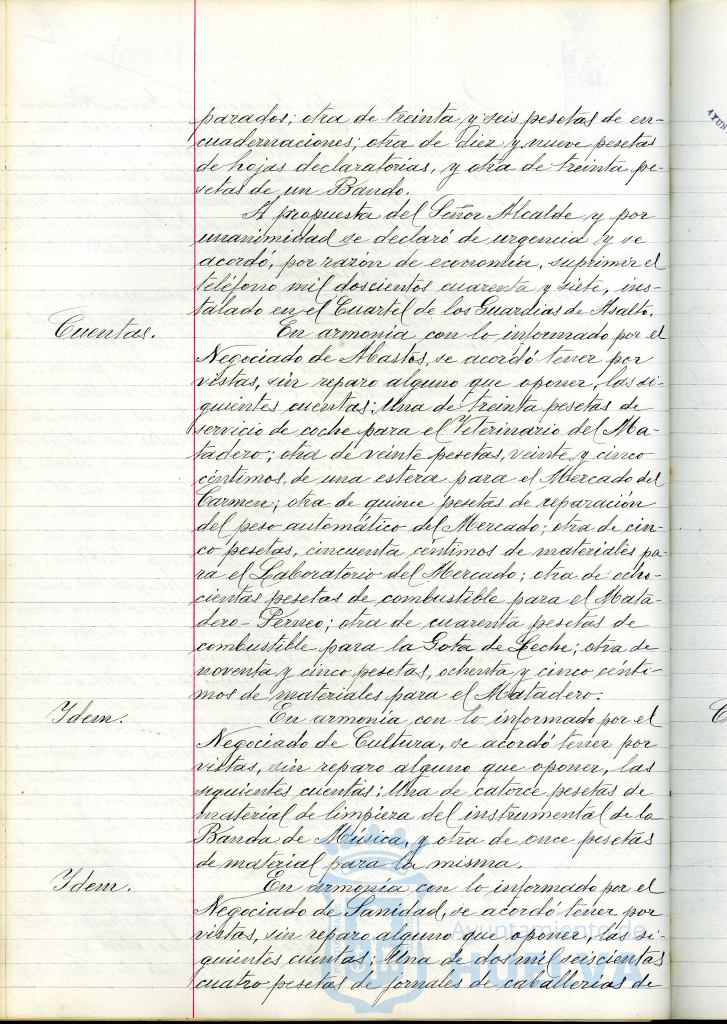 parados; otra de treinta y seis pesetas de en-
cuadernaciones; otra de diez y nueve pesetas
de hojas declaratorias, y otra de treinta pe-
setas de un Bando.
A propuesta del Señor Alcalde y por
unanimidad se declaró de urgencia y se
acordó, por razón de economía, suprimir el
teléfono mil doscientos cuarenta y siete, ins-
talado en el Cuartel de los Guardias de Asalto.
Cuentas.
En armonía con lo informado por el
Negociado de Abastos, se acordó tener por
vistas, sin reparo alguno que oponer, las si-
guientes cuentas: Una de treinta pesetas de
servicio de coche para el Veterinario del Ma-
tadero; otra de veinte pesetas, veinte y cinco
céntimos, de una estera para el Mercado del
Carmen; otra de quince pesetas de reparación
del peso automático del Mercado; otra de cin-
co pesetas, cincuenta céntimos de materiales pa-
ra el Laboratorio del Mercado; otra de ocho-
cientas pesetas de combustible para el Mata-
dero-Perneo; otra de cuarenta pesetas de
combustible para la Gota de Leche; otra de
noventa y cinco pesetas, ochenta y cinco cénti-
mos de materiales para el Matadero.
Idem.
En armonía con lo informado por el
Negociado de Cultura, se acordó tener por
vistas, sin reparo alguno que oponer, las
siguientes cuentas: Una de catorce pesetas de
material de limpieza del instrumental de la
Banda de Música, y otra de once pesetas
de material para la misma.
Idem.
En armonía con lo informado por el
Negociado de Sanidad, se acordó tener por
vistas, sin reparo alguno que oponer, las si-
guientes cuentas; Una de dos mil seiscientas
cuatro pesetas de jornales de caballerias de
Ayuntamiento de
HUELVA